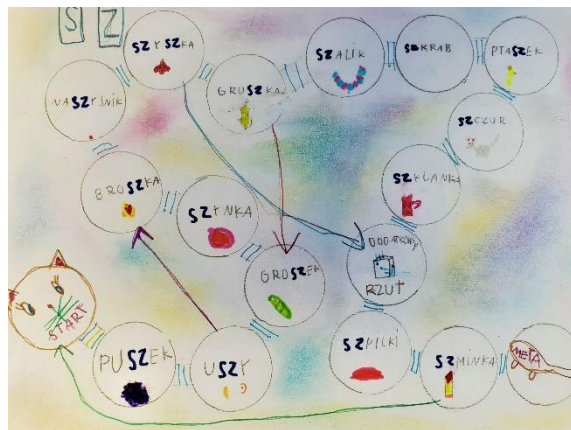 S Z
SZYSZKA
GRUSZKA
SZALIK
SZKRAB
PTASZEK
NASZYJNIK
SZCZUR
BROSZKA
SZYNKA
SZKLANKA
GROSZEK
DODATKOWY
RZUT
START
PUSZEK
USZY
SZPILKI
SZMINKA
META